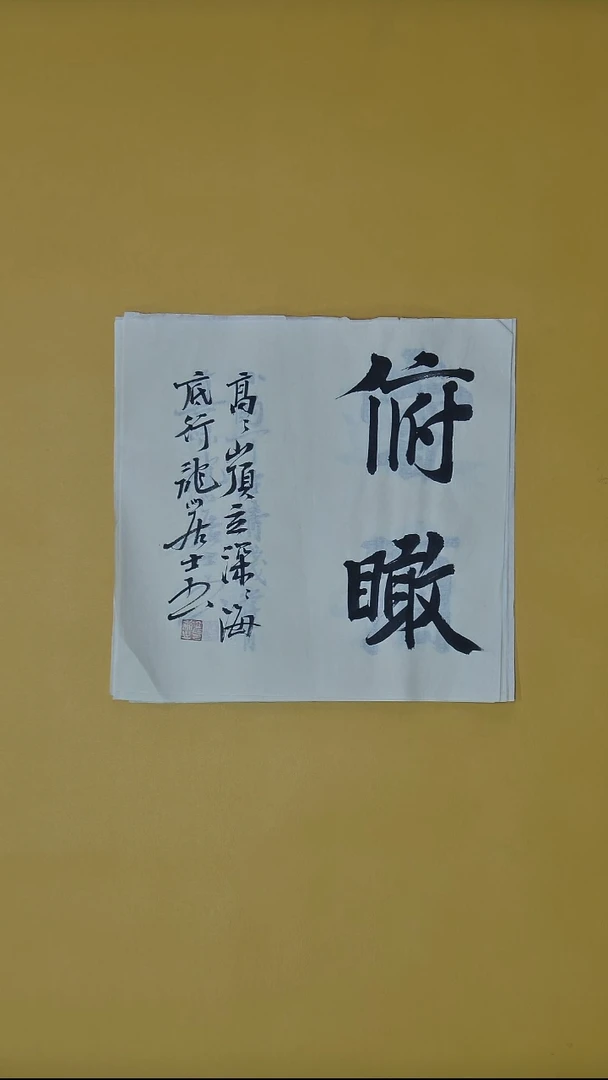 俯瞰
高〻山頂立深〻海
底行龍山居士書